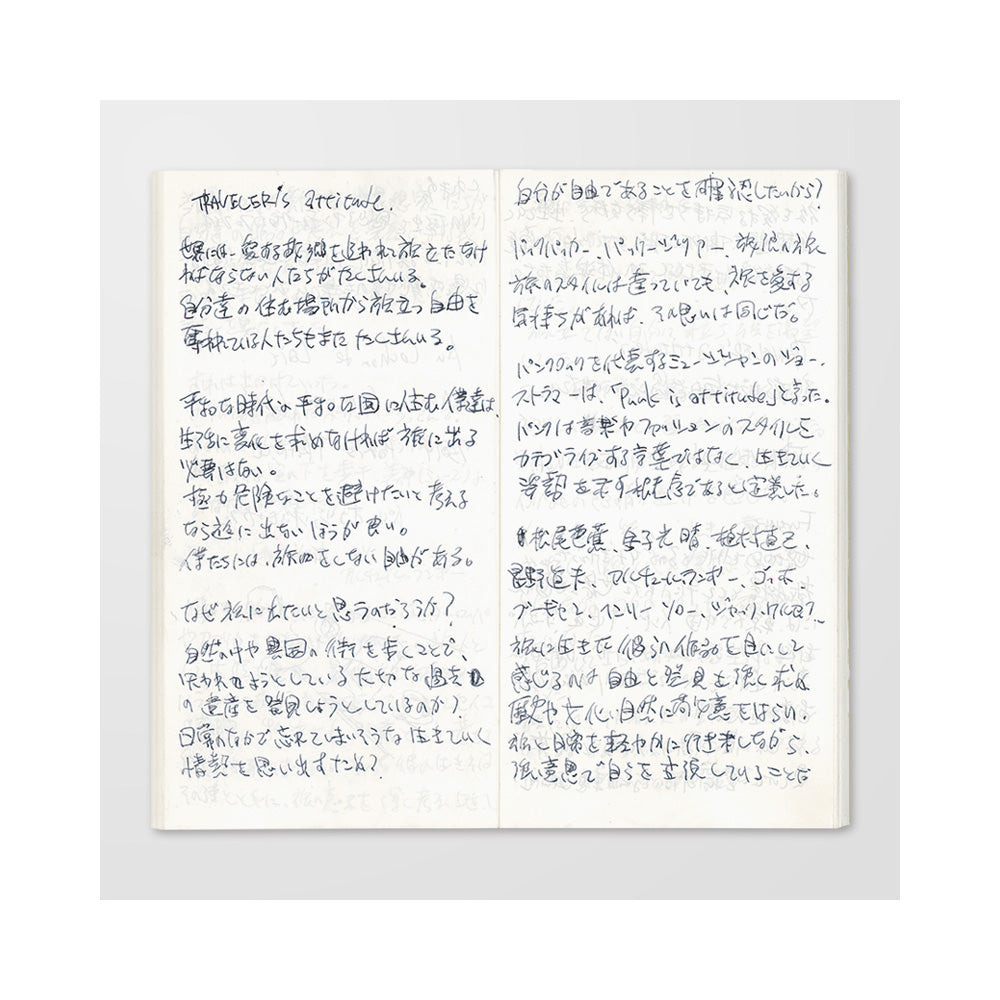 TRAVELER's attitude.
世界には、愛する故郷を追われて旅立たなけ
ればならない人たちがたくさんいる。
自分達の住む場所から旅立つ自由を
奪われている人たちもまたたくさんいる。
平和な時代の平和な国に住む僕達は、
生活に変化を求めなければ旅に出る
必要はない。
極力危険なことを避けたいと考える
なら旅に出ないほうが良い。
僕たちには、旅をしない自由がある。
なぜ旅に出たいと思うのだろうか?
自然の中や異国の街を歩くことで、
失われようとしている大切な過去
の遺産を発見しようとしているのか?
日常のなかで忘れてしまいそうな生きていく
情熱を思い出すためか?
自分が自由であることを確認したいから?
バックパッカー、パッケージツアー、放浪の旅
旅のスタイルは違っていても、旅を愛する
気持ちがあれば、その思いは同じだ。
パンクロックを代表するミュージシャンのジョー・
ストラマーは、「Punk is attitude」と言った。
パンクは音楽やファッションのスタイルを
カテゴライズする言葉ではなく、生きていく
姿勢を示す言葉であると定義した。
松尾芭蕉、金子光晴、植村直己、
星野道夫、アルチュール・ランボー、ゴッホ、
ゴーギャン、ヘンリー・ソロー、ジャック・ケルアック…
旅に生きた彼らの作品を目にして
感じるのは自由と発見を強く求め
歴史や文化、自然に敬意をはらい、
旅と日常を軽やかに行き来しながら、
強い意思で自らを主張していることだ